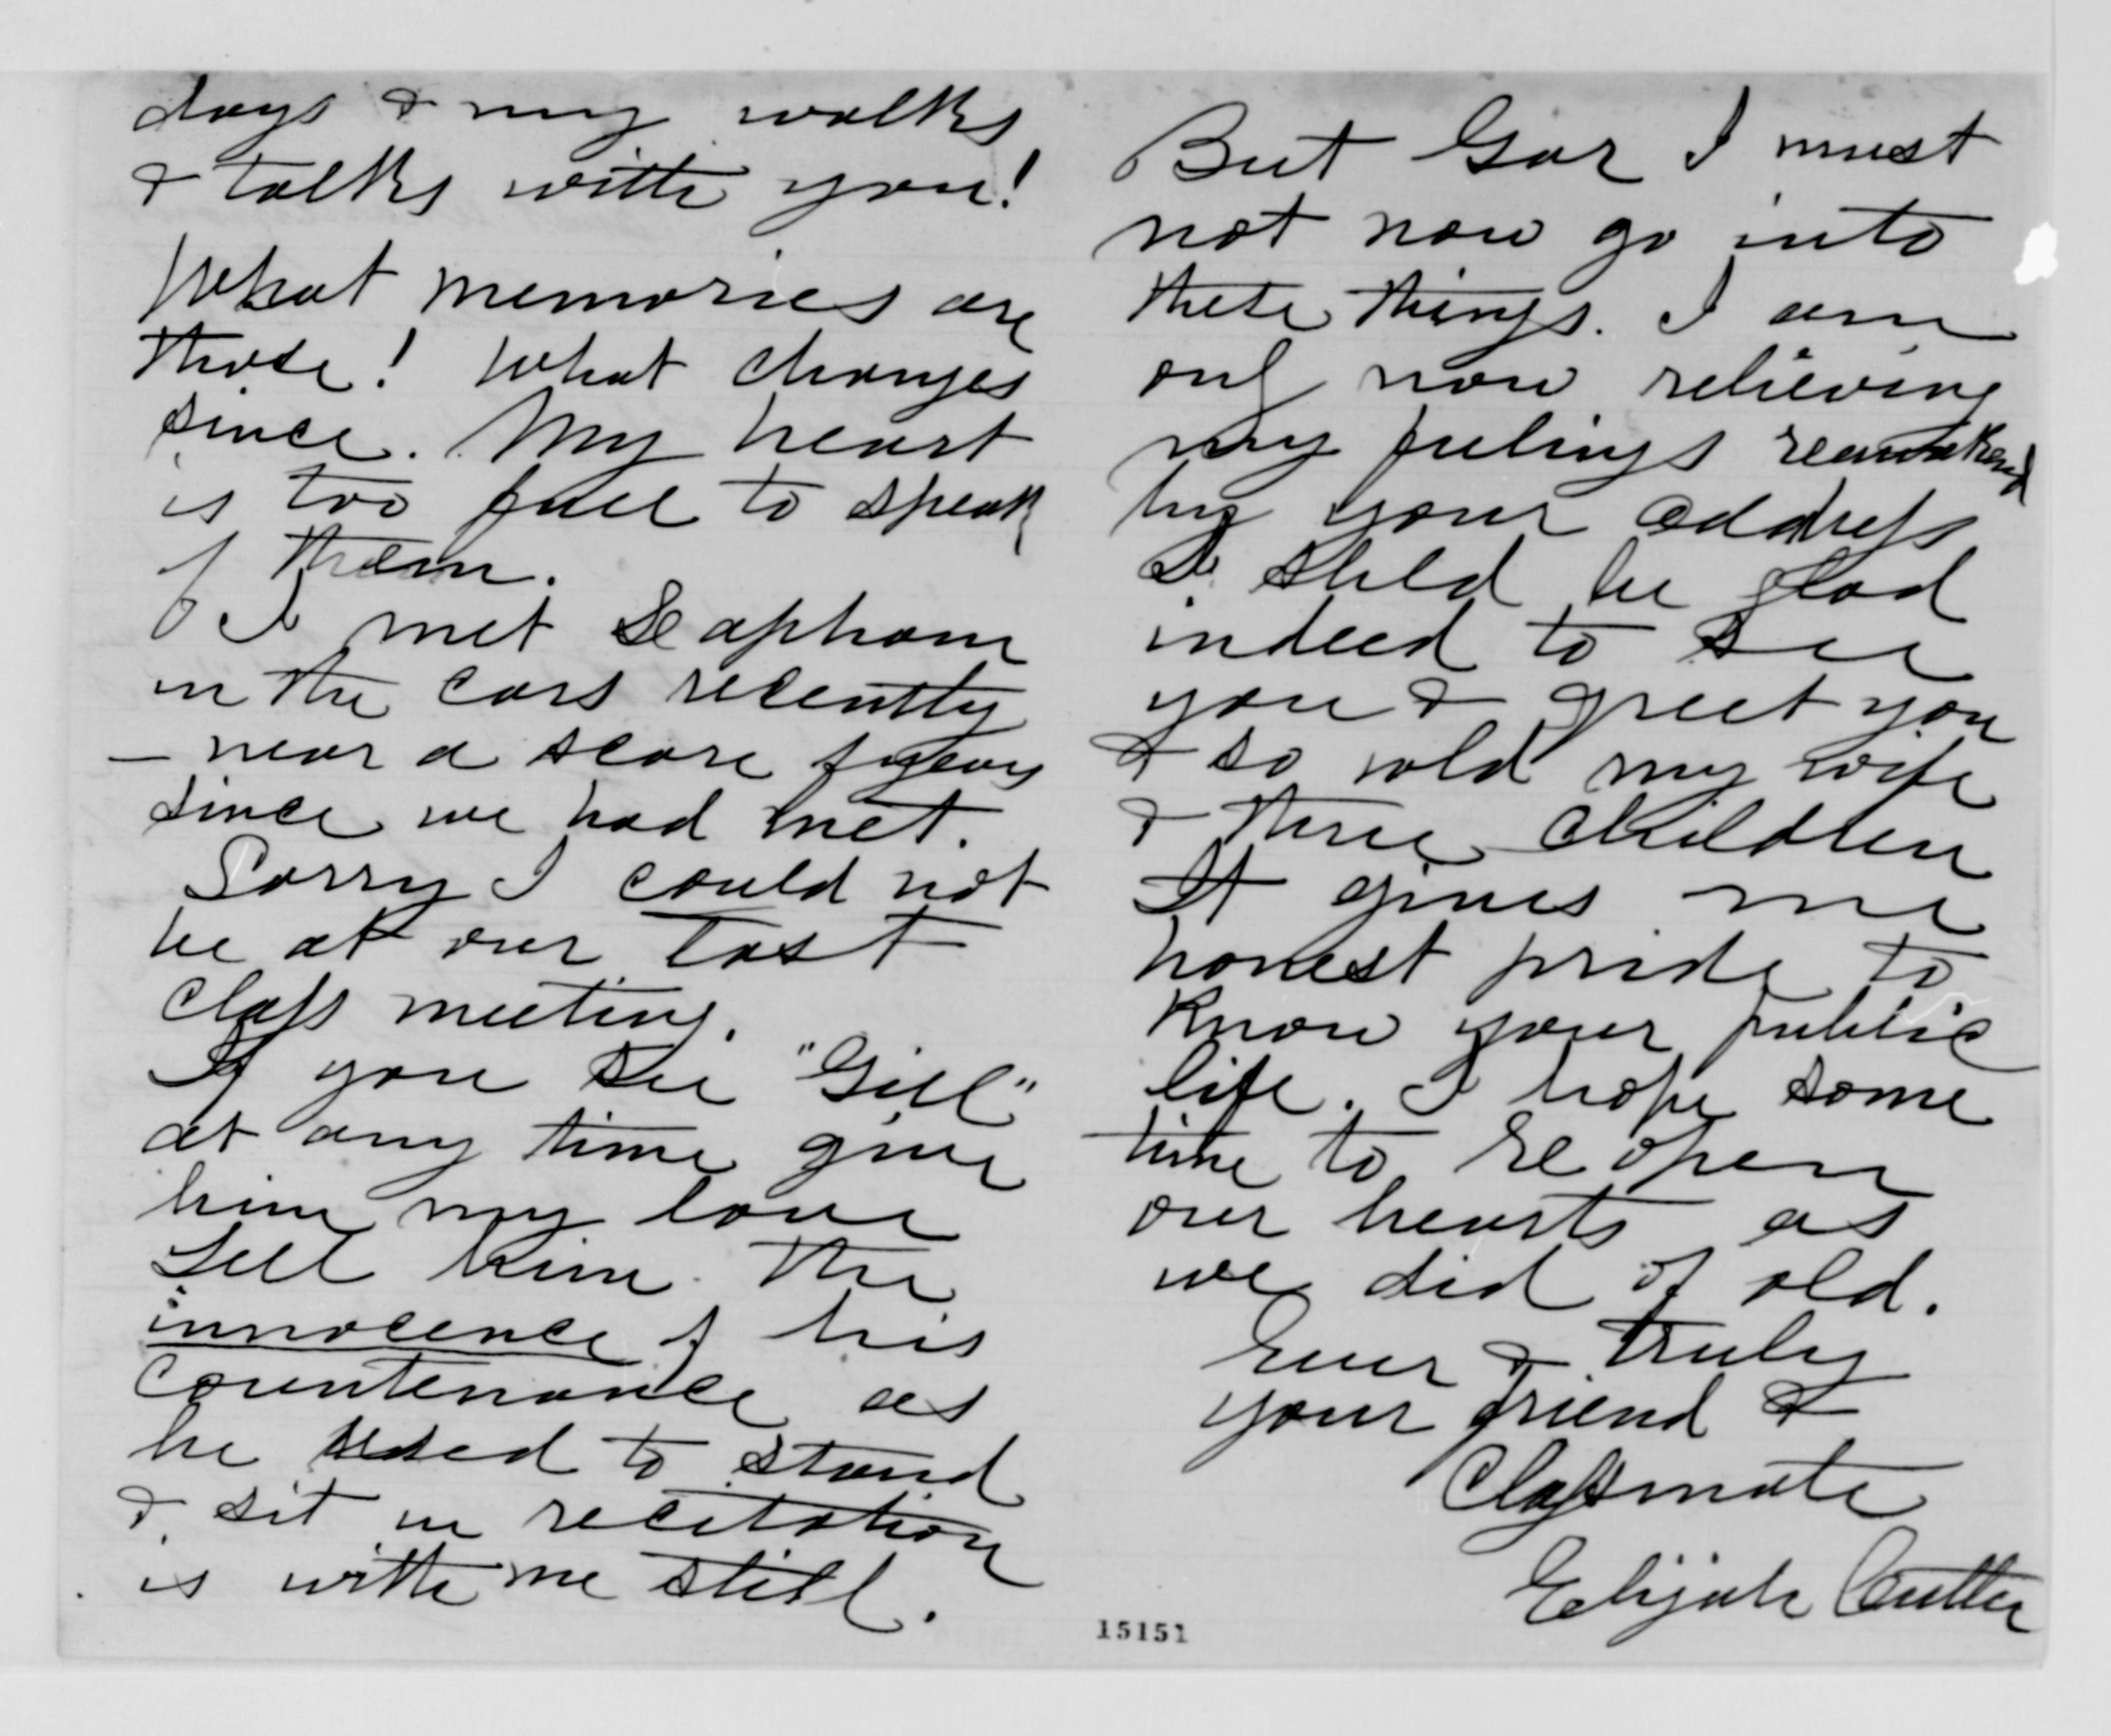 days & my walks
& talks with you!
What memories are
those! What changes
since. My heart
is too full to speak
of them.
I met Seapham
in the cars recently
— near a score of years
since we had met.
Sorry I could not
be at our last
Class meeting.
If you see "Gill"
at any time give
him my love
Tell him the
innocence of his
countenance as
he used to stand
& sit in recitation
is with me still.
But Gar I must
not now go into
these things. I am
only now relieving
my feelings reawakened
by your address
I shld be glad
indeed to see
you & greet you
& so wld my wife
& three children
It gives me
honest pride to
know your public
life. I hope some
time to re open
our hearts as
we did of old.
Ever & truly
your friend &
Classmate
Elijah Cutler
15151